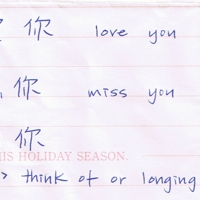 你 love you
你 miss you
你
HIS HOLIDAY SEASON.
> think of or longing